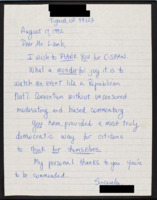 August 17, 1992
Dear Mr. Lamb,
I wish to THANK YOU for C-SPAN.
What a wonderful joy it is to
watch an event like a Republican
Nat'l Convention without uncensored
moderating and biased commentary.
You have provided a most truly
democratic way for citizens
to think for themselves.
My personal thanks to you you're
to be commended.
Sincerely